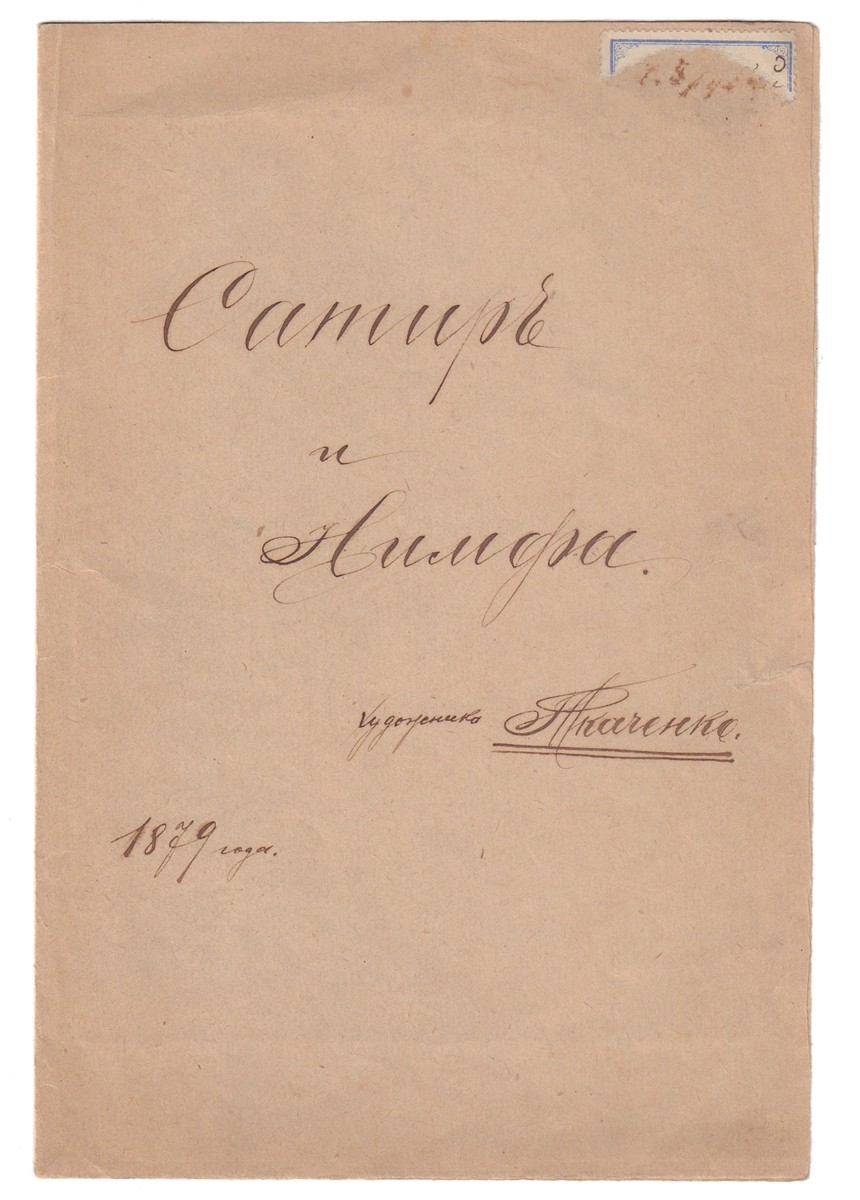 Сатиръ
и
Нимфа.
художника Ткаченко.
1879 года.